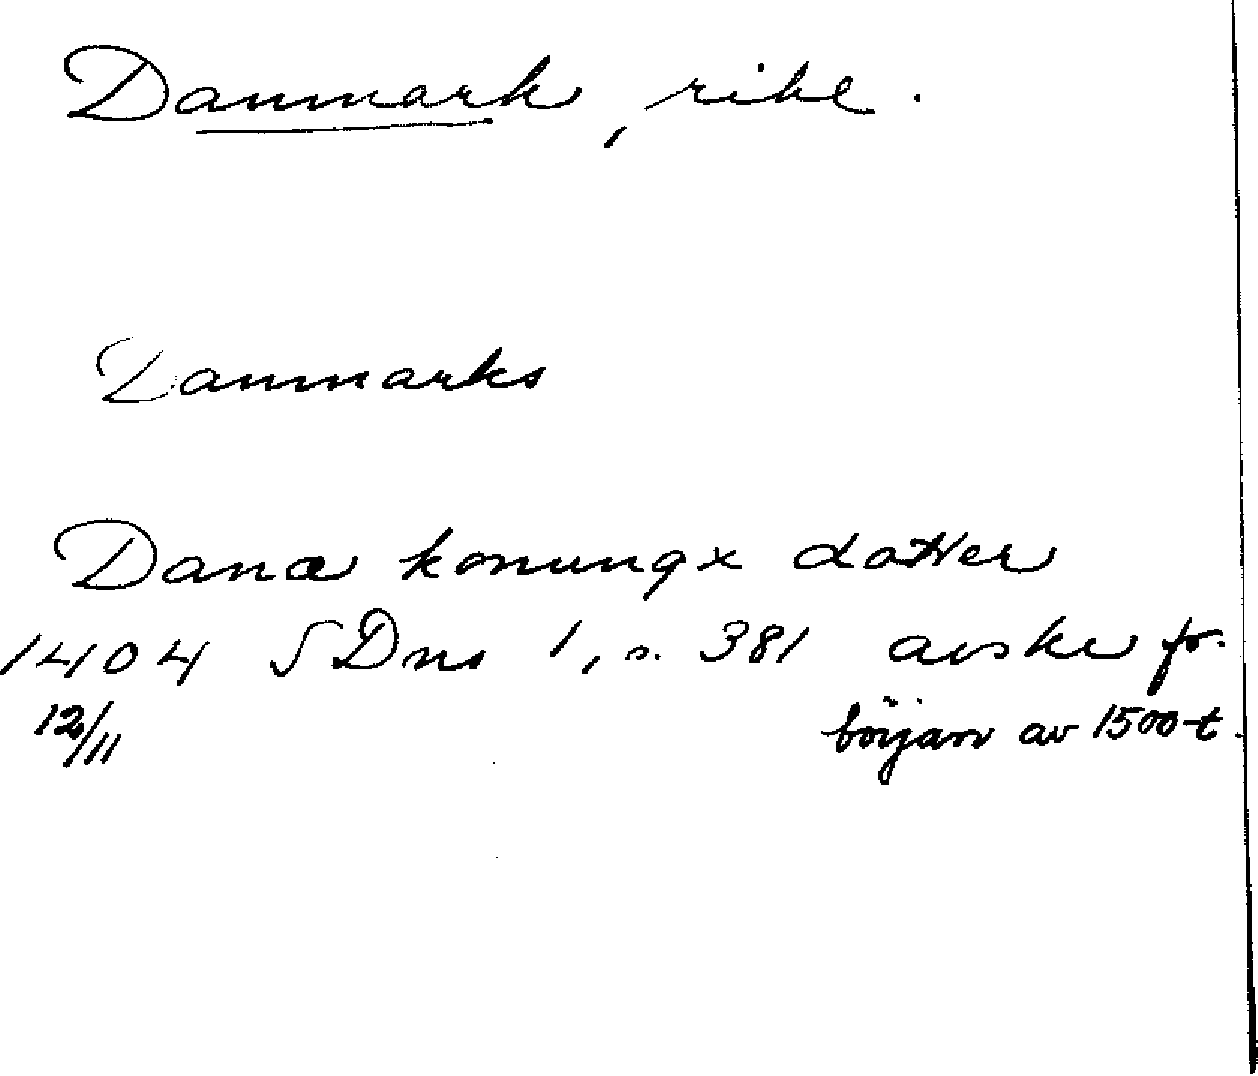 Danmark, rike.
Danmarks
Danæ konungx dotter
1404 SDns 1, s. 381 avskr fr.
12/11 början av 1500-t.